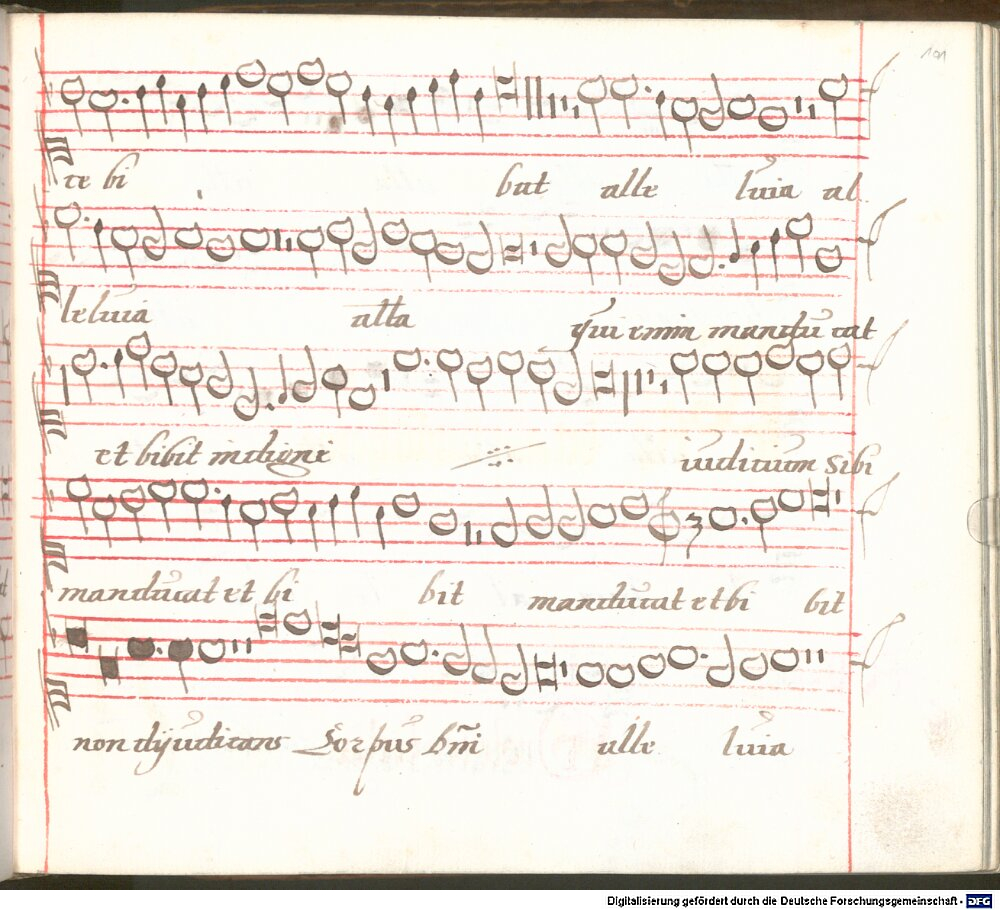 101
te bi bat alle luia al
leluia alla qui enim mandu cat
et bibit indigne iudicium sibi
manducat et bi bit manducat et bi bit
non dijudicans Corpus dm̄i alle luia
Digitalisierung gefördert durch die Deutsche Forschungsgemeinschaft - DFG